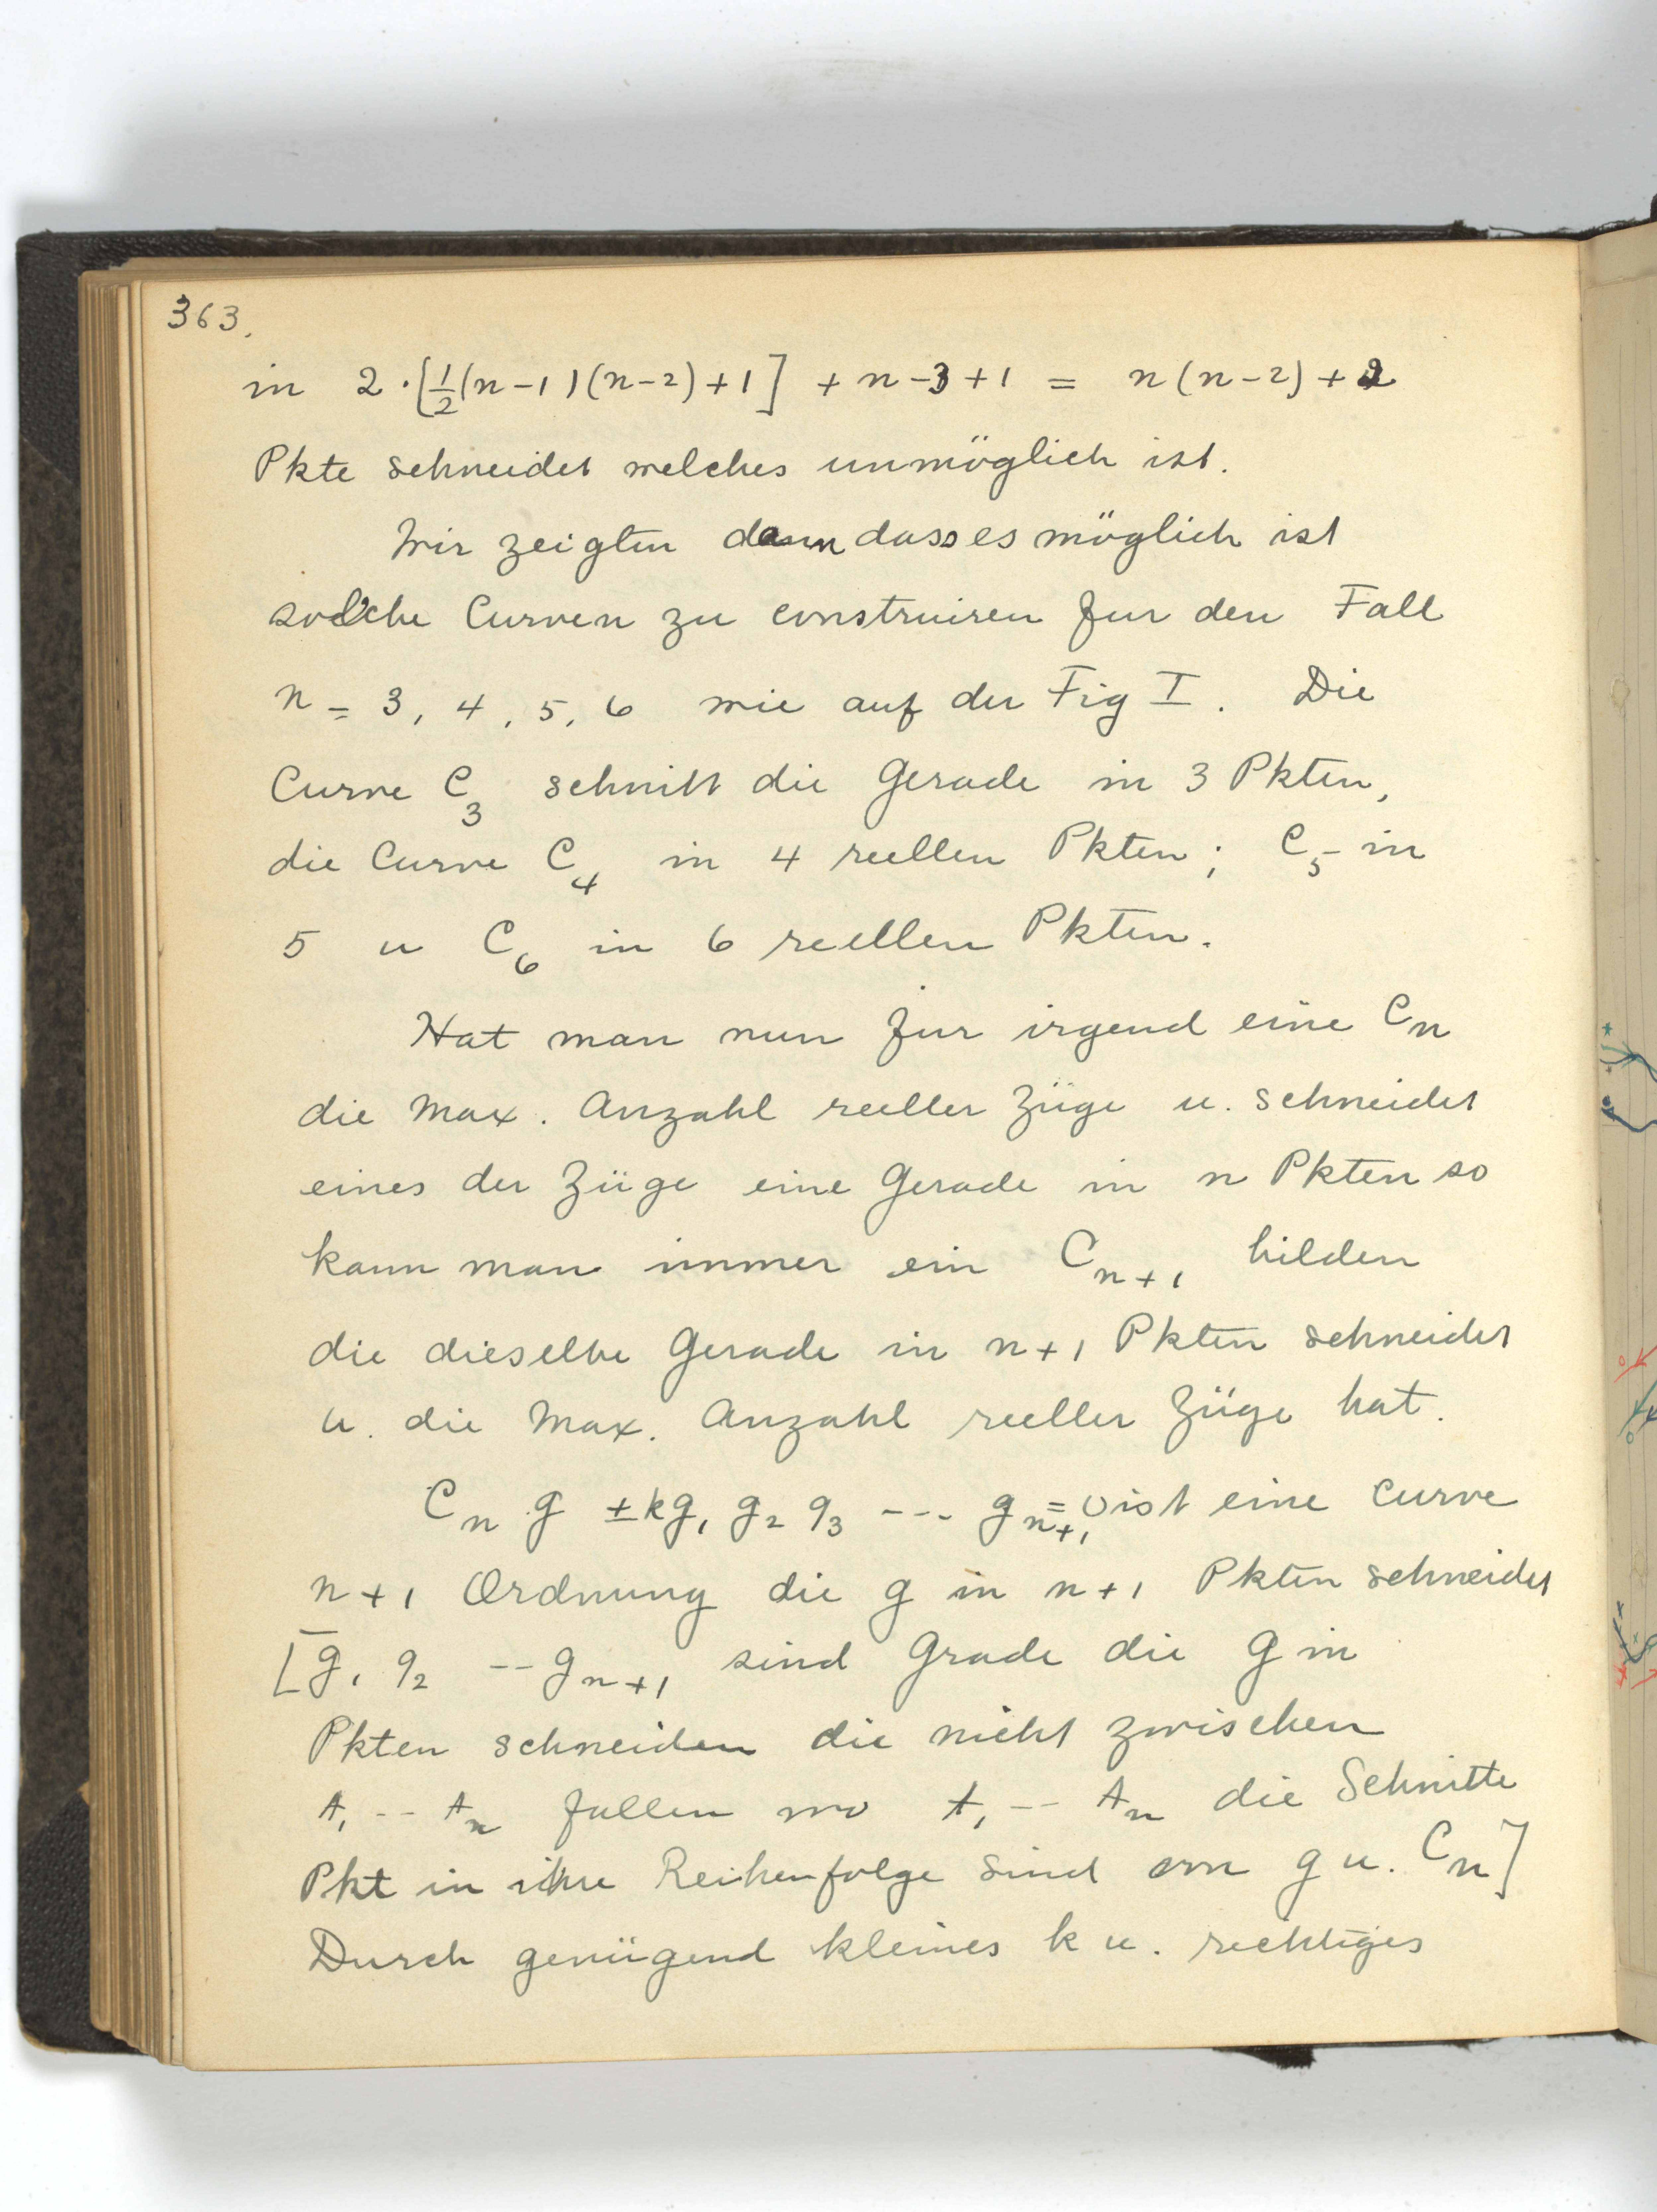 363.
in 2·[½(n-1)(n-2)+1] + n-3+1 = n(n-2)+2
Pkte schneidet welches unmöglich ist.
Wir zeigten dann dass es möglich ist
solche Curven zu construiren fur den Fall
n = 3, 4, 5, 6 wie auf der Fig I. Die
Curve C₃ schnitt die Gerade in 3 Pkten,
die Curve C₄ in 4 reellen Pkten; C₅ in
5 u C₆ in 6 reellen Pkten.
Hat man nun fur irgend eine Cₙ
die Max. Anzahl reeller Züge u. schneidet
eines der Züge eine Gerade in n Pkten so
kann man immer ein Cₙ₊₁ bilden
die dieselbe Gerade in n+1 Pkten schneidet
u. die Max. Anzahl reeller Züge hat.
Cₙ g ±kg₁ g₂ g₃ --- gₙ₊₁=0 ist eine Curve
n+1 Ordnung die g in n+1 Pkten schneidet
[g₁ g₂ -- gₙ₊₁ sind Grade die g in
Pkten schneiden die nicht zwischen
A₁ -- Aₙ fallen wo A₁ -- Aₙ die Schnitte
Pkt in ihre Reihenfolge sind von g u. Cₙ]
Durch genügend kleines k u. richtiges